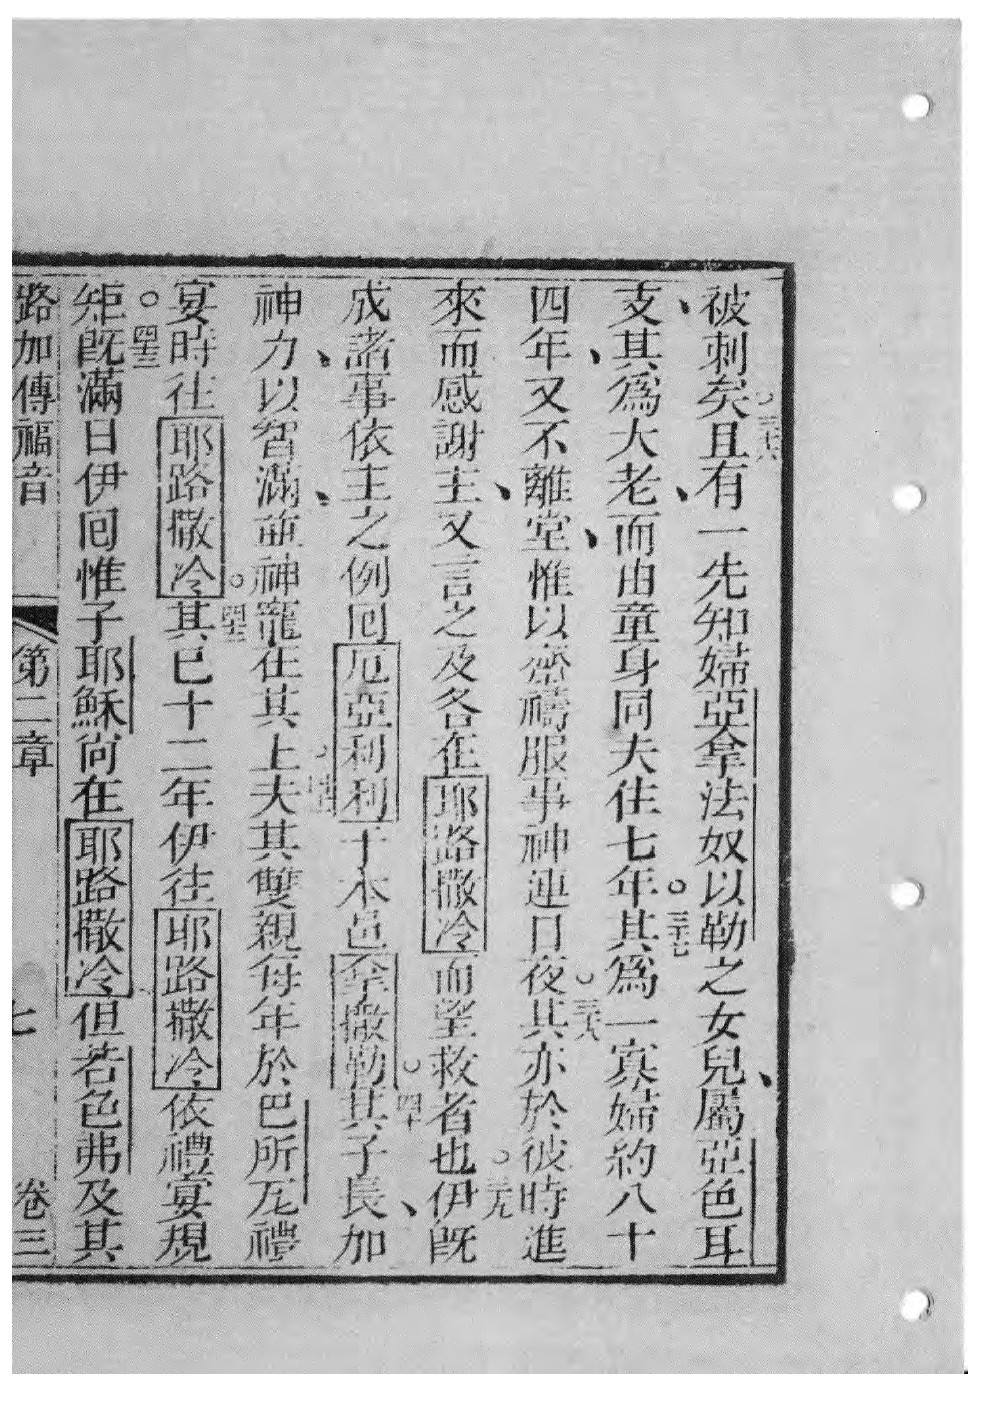 被刺矣。三十六且有一先知婦亞拿法奴以勒之女兒、屬亞色耳
支、其爲大老、而由童身同夫住七年。三十七其爲一寡婦約八十
四年、又不離堂、惟以齋禱服事神連日夜。三十八其亦於彼時進
來而感謝主、又言之及各在耶路撒冷而望救者也。三十九伊既
成諸事依主之例回厄亞利利于本邑拿撒勒。四十其子長、加
神力、以智滿、並神寵在其上。四十一夫其雙親每年於巴所瓦禮
宴時往耶路撒冷。四十二其已十二年伊往耶路撒冷依禮宴規
矩。四十三既滿日伊回惟子耶穌尚在耶路撒冷但若色弗及其
路加傳福音 第二章 七 卷三